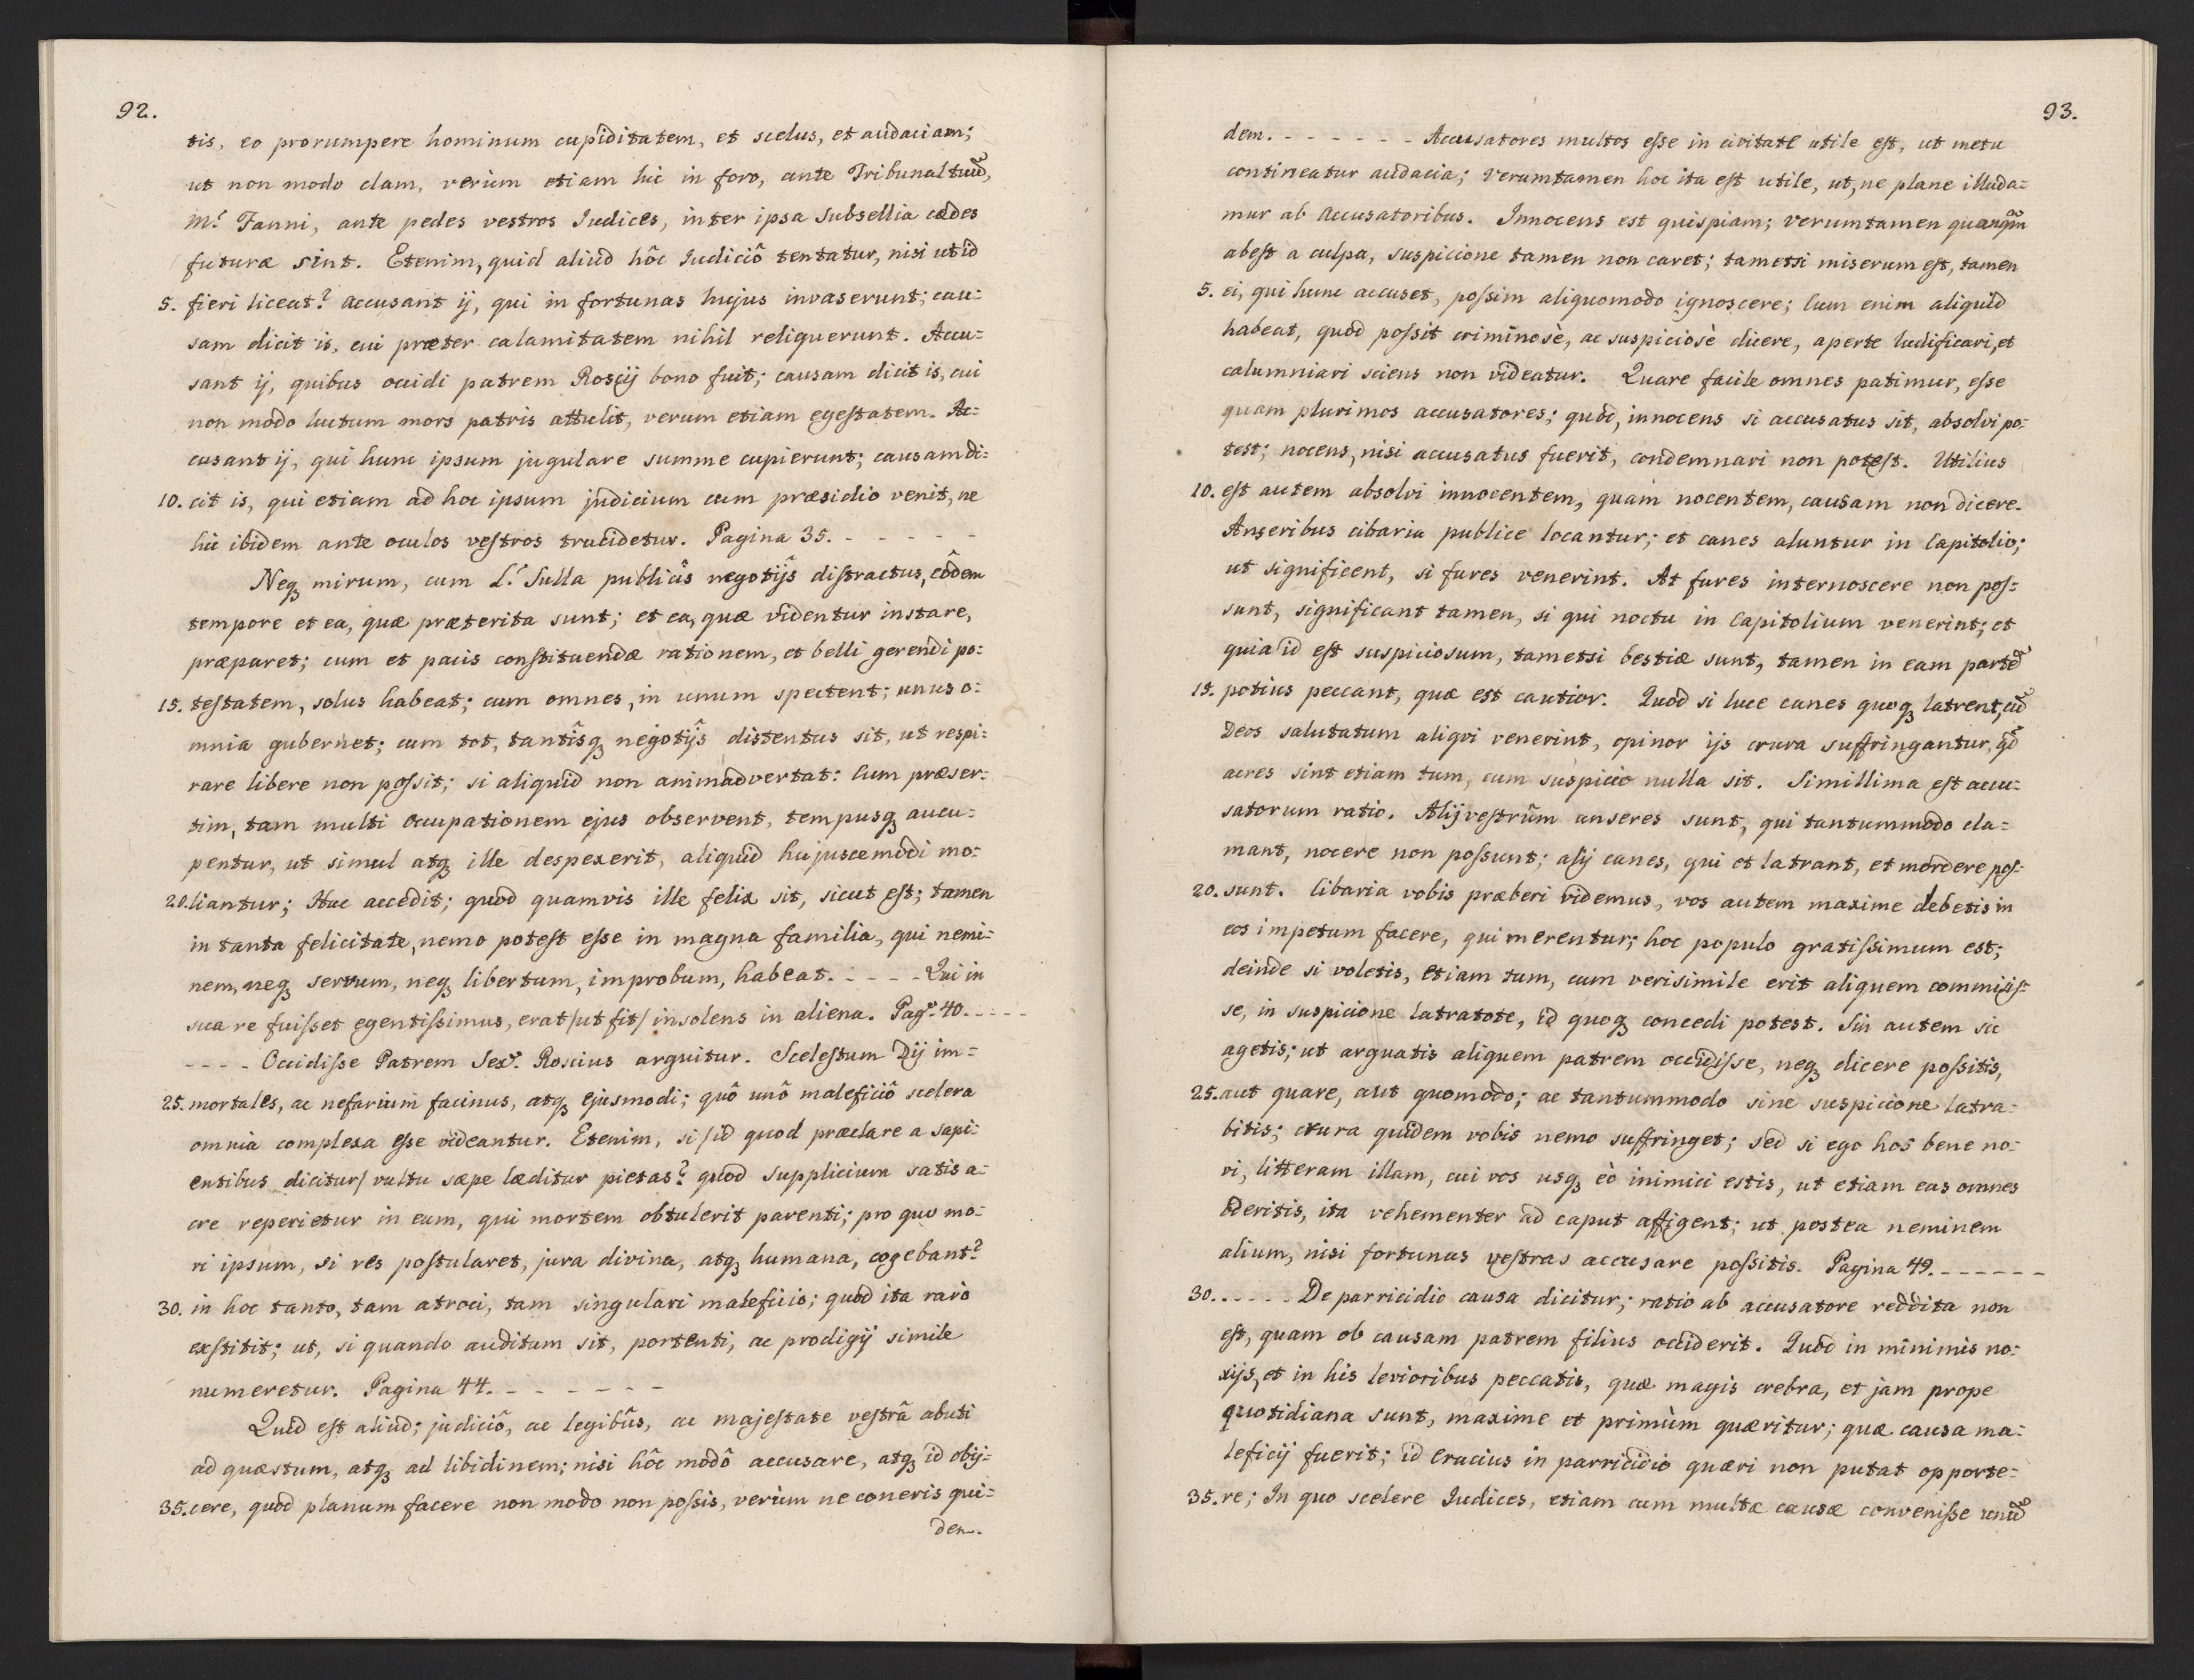 92.
tis, eo prorumpere hominum cupiditatem, et scelus, et audaciam;
ut non modo clam, verùm etiam hic in foro, ante Tribunal tuũ,
M.ͨ Fanni, ante pedes vestros Iudices, inter ipsa subsellia cædes
futuræ sint. Etenim, quid aliud hôc Iudiciô tentatur, nisi ut id
5. fieri liceat? accusant ij, qui in fortunas hujus invaserunt; cau=
sam dicit is, cui præter calamitatem nihil reliquerunt. Accu=
sant ij, quibus occidi patrem Roscij bono fuit; causam dicit is, cui
non modo luctum mors patris attulit, verum etiam egestatem. Ac=
cusant ij, qui hunc ipsum jugulare summe cupierunt; causam di=
10. cit is, qui etiam ad hoc ipsum judicium cum præsidio venit, ne
hic ibidem ante oculos vestros trucidetur. Pagina 35. - - - - -
Neqꝫ mirum, cum L.ͨ Sulla publicîs negotijs distractus, eôdem
tempore et ea, quæ præterita sunt; et ea, quæ videntur instare,
præparet; cum et pacis constituendæ rationem, et belli gerendi po=
15. testatem, solus habeat; cum omnes, in unum spectent; unus o=
mnia gubernet; cum tot, tantîsqꝫ negotijs distentus sit, ut respi=
rare libere non possit; si aliquid non animadvertat: Cum præser=
tim, tam multi occupationem ejus observent, tempusqꝫ aucu=
pentur, ut simul atqꝫ ille despexerit, aliquid hujuscemodi mo=
20. liantur; Huc accedit; quod quamvis ille felix sit, sicut est; tamen
in tanta felicitate, nemo potest esse in magna familia, qui nemi=
nem, neqꝫ servum, neqꝫ libertum, improbum, habeat. - - - - Qui in
sua re fuisset egentissimus, erat /ut fit/ insolens in aliena. Pag.ª 40. - - - -
- - - - Occidisse Patrem Sex.ͨ Roscius arguitur. Scelestum Dij im=
25. mortales, ac nefarium facinus, atqꝫ ejusmodi; quô unô maleficiô scelera
omnia complexa esse videantur. Etenim, si /id quod præclare a sapi=
entibus dicitur/ vultu sæpe læditur pietas? quod supplicium satis a=
cre reperietur in eum, qui mortem obtulerit parenti; pro quo mo=
ri ipsum, si res postularet, jura divina, atqꝫ humana, cogebant?
30. in hoc tanto, tam atroci, tam singulari maleficio; quod ita rarò
exstitit; ut, si quando auditum sit, portenti, ac prodigij simile
numeretur. Pagina 44. - - - - - -
Quid est aliud; judiciô, ac legibûs, ac majestate vestrâ abuti
ad quæstum, atqꝫ ad libidinem; nisi hôc modô accusare, atqꝫ id obij=
35. cere, quod planum facere non modo non possis, verùm ne coneris qui=
dem.
93.
dem. - - - - - - - Accusatores multos esse in civitate utile est, ut metu
contineatur audacia; verumtamen hoc ita est utile, ut, ne plane illuda=
mur ab accusatoribus. Innocens est quispiam; verumtamen quanqm̃
abest a culpa, suspicione tamen non caret; tametsi miserum est, tamen
5. ei, qui hunc accuset, possim aliquomodo ignoscere; Cum enim aliquid
habeat, quod possit criminosè, ac suspiciosè dicere, aperte ludificari, et
calumniari sciens non videatur. Quare facile omnes patimur, esse
quam plurimos accusatores; quod, innocens si accusatus sit, absolvi po=
test; nocens, nisi accusatus fuerit, condemnari non potest. Utilius
10. est autem absolvi innocentem, quam nocentem, causam non dicere.
Anseribus cibaria publice locantur; et canes aluntur in Capitolio;
ut significent, si fures venerint. At fures internoscere non pos=
sunt, significant tamen, si qui noctu in Capitolium venerint; et
quia id est suspiciosum, tametsi bestiæ sunt, tamen in eam partẽ
15. potius peccant, quæ est cautior. Quod si luce canes quoqꝫ latrent, cũ
Deos salutatum aliqvi venerint, opinor ijs crura suffringantur, qd̃
acres sint etiam tum, cum suspicio nulla sit. Simillima est accu=
satorum ratio. Alij vestrûm anseres sunt, qui tantummodo cla=
mant, nocere non possunt; alij canes, qui et latrant, et mordere pos=
20. sunt. Cibaria vobis præberi videmus, vos autem maxime debetis in
eos impetum facere, qui merentur; hoc populo gratissimum est;
deinde si voletis, etiam tum, cum verisimile erit aliquem commisis=
se, in suspicione latratote, id quoqꝫ concedi potest. Sin autem sic
agetis; ut arguatis aliquem patrem occidisse, neqꝫ dicere possitis,
25. aut quare, aut quomodo; ac tantummodo sine suspicione latra=
bitis; crura quidem vobis nemo suffringet; sed si ego hos bene no=
vi, litteram illam, cui vos usqꝫ eò inimici estis, ut etiam eas omnes
oderitis, ita vehementer ad caput affigent; ut postea neminem
alium, nisi fortunas vestras accusare possitis. Pagina 49. - - - - - -
30. - - - - - De parricidio causa dicitur; ratio ab accusatore reddita non
est, quam ob causam patrem filius occiderit. Quod in minimis no=
xijs, et in his levioribus peccatis, quæ magis crebra, et jam prope
quotidiana sunt, maxime et primùm quæritur; quæ causa ma=
leficij fuerit; id Erucius in parricidio quæri non putat opporte=
35. re; In quo scelere Iudices, etiam cum multæ causæ convenisse unũ